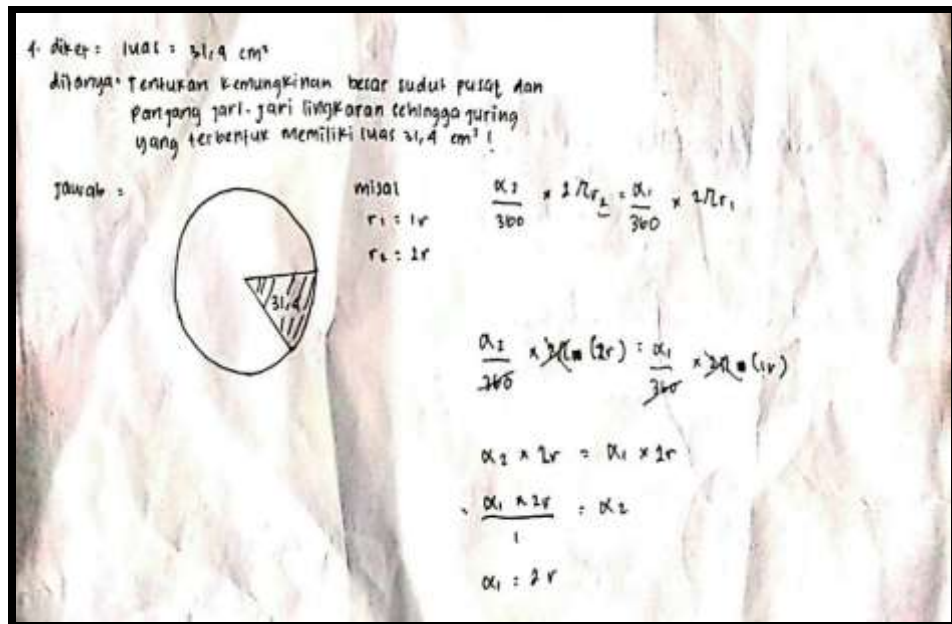 4. diket = luas = 31,4 cm²
ditanya = Tentukan kemungkinan besar sudut pusat dan
panjang jari-jari lingkaran sehingga juring
yang terbentuk memiliki luas 31,4 cm² !
Jawab =
31,4
misal
r₁ = 1r
r₂ = 2r
α₂/360 × 2πr₂ = α₁/360 × 2πr₁
α₂/360 × 2π (2r) = α₁/360 × 2π (1r)
α₂ × 2r = α₁ × 2r
= α₁ × 2r / 1 = α₂
α₁ = 2r